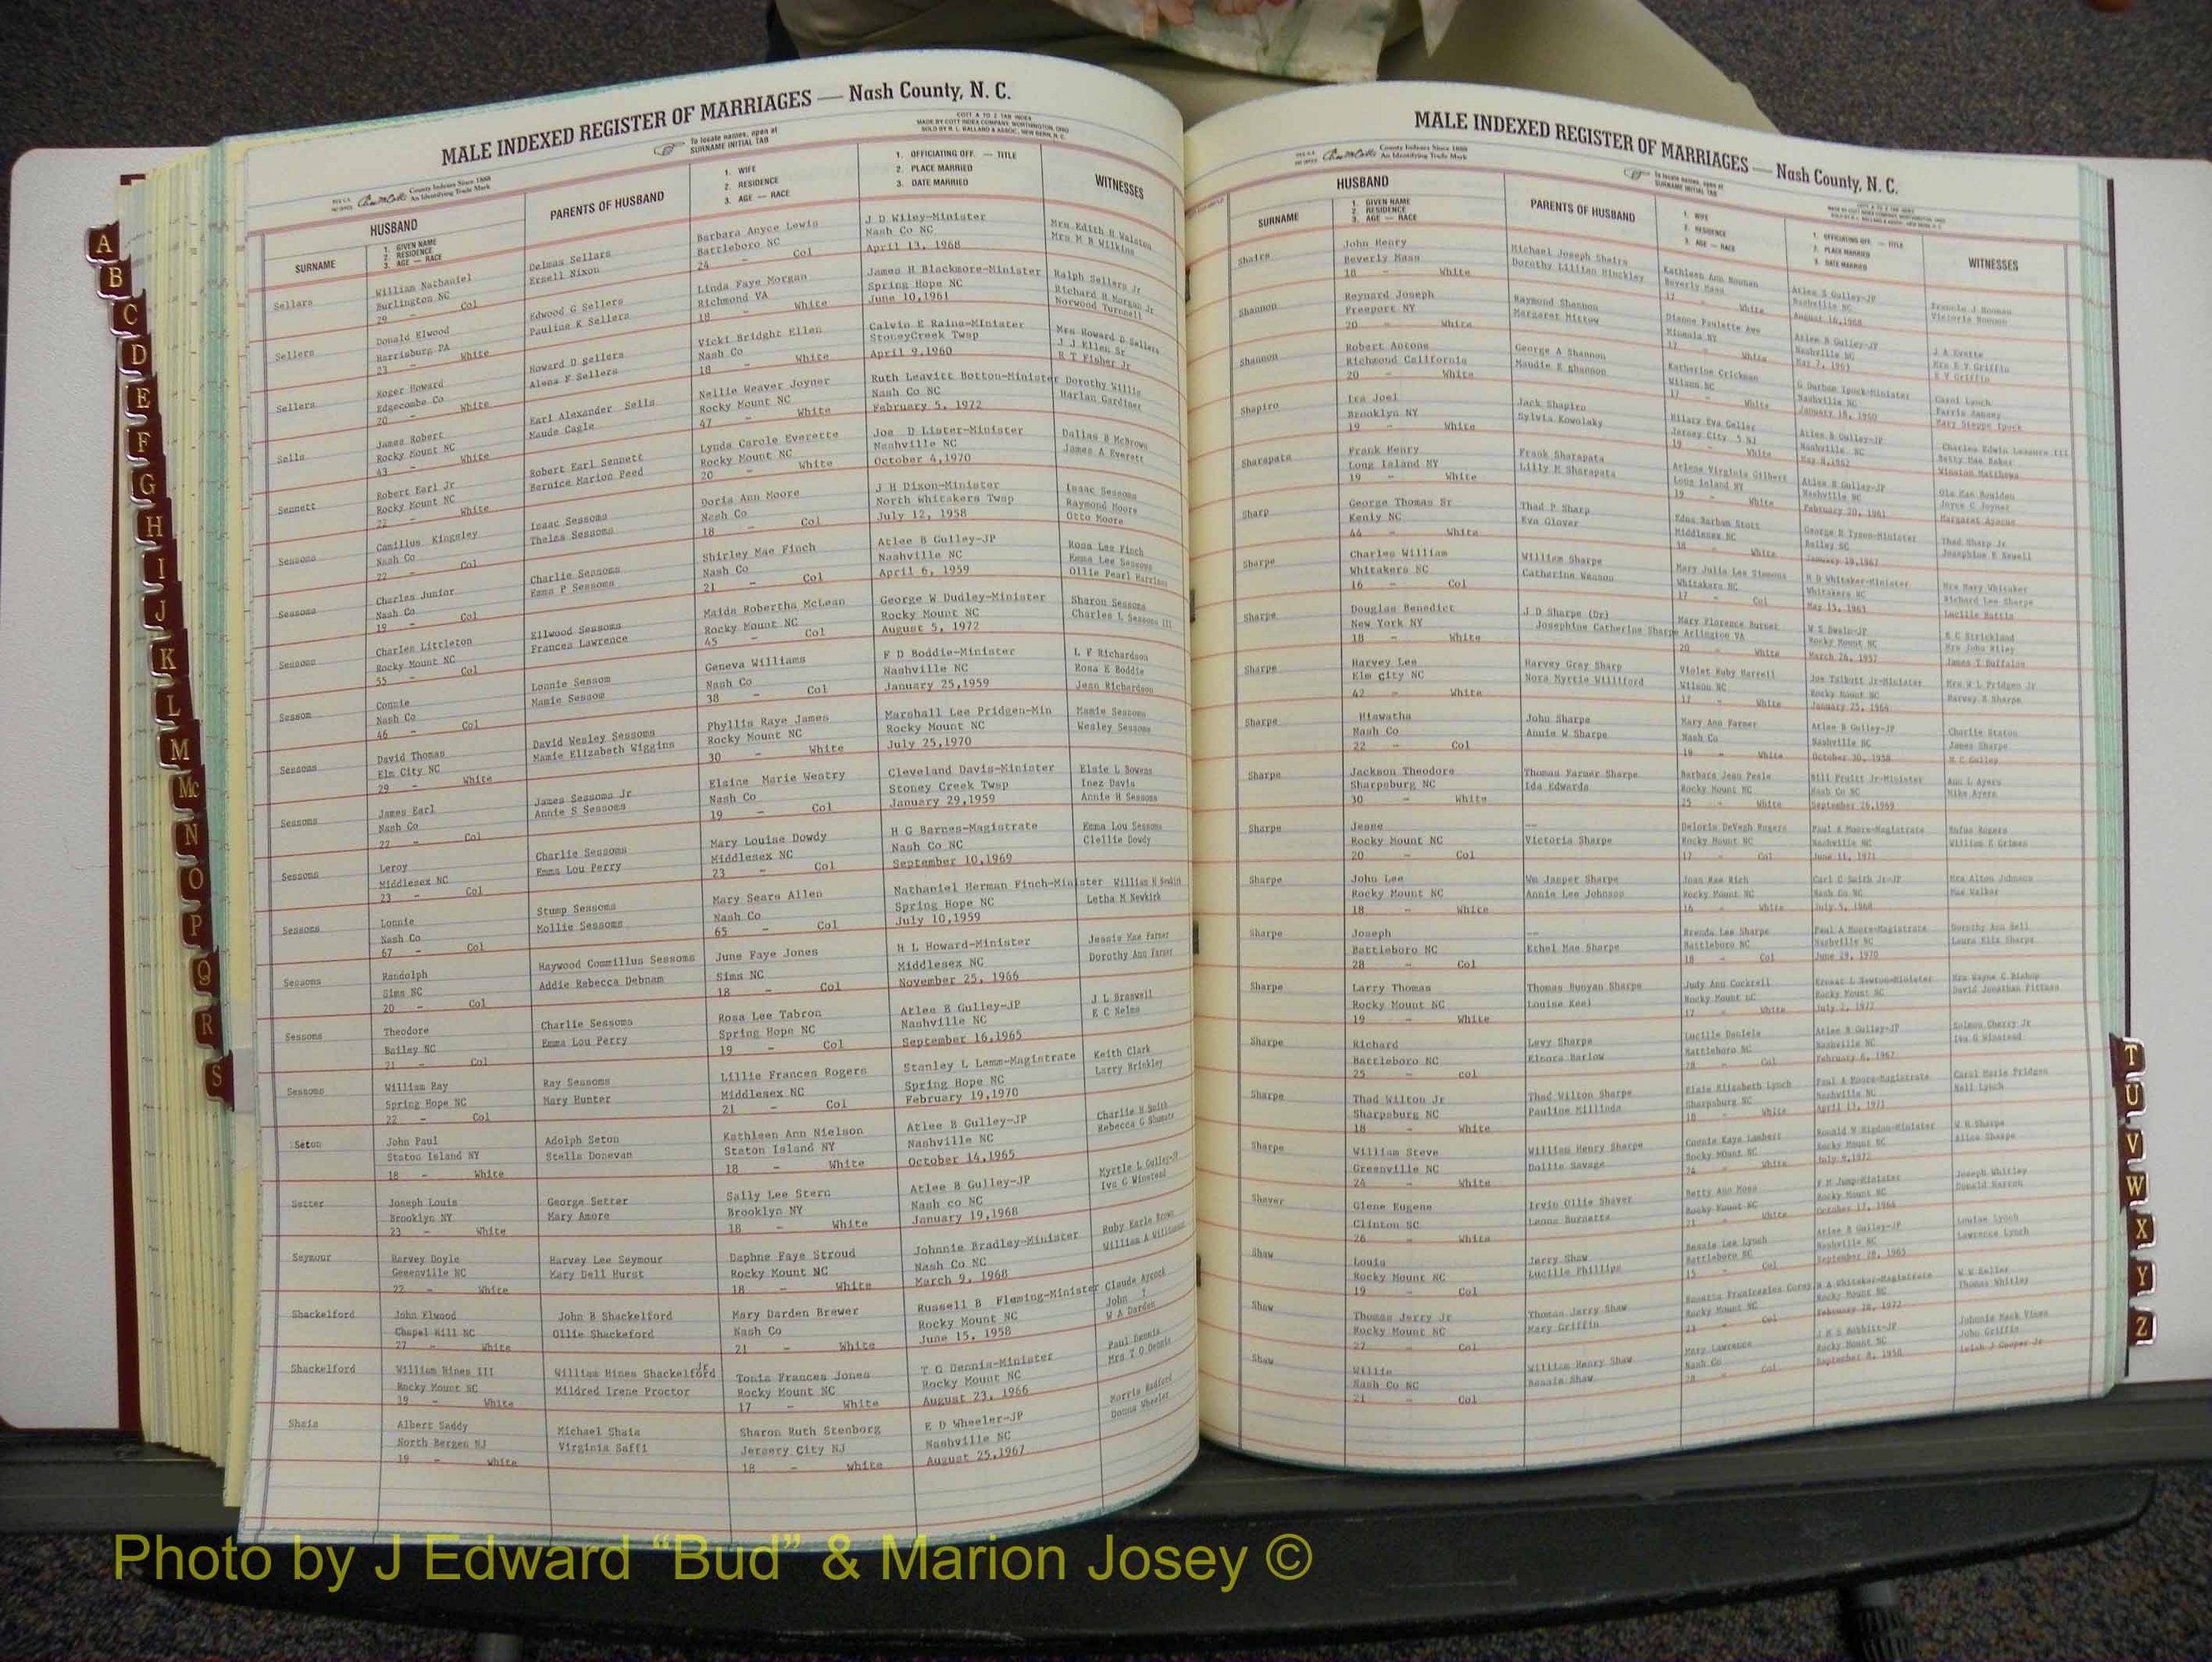 MALE INDEXED REGISTER OF MARRIAGES — Nash County, N. C.
County Indexes Since 1888
An Identifying Trade Mark
To locate names, open at
SURNAME INITIAL TAB
COTT A TO Z TAB INDEX
MADE BY COTT INDEX COMPANY, WORTHINGTON, OHIO
SOLD BY R. L. BALLARD & ASSOC., NEW BERN, N. C.
HUSBAND
SURNAME
1. GIVEN NAME
2. RESIDENCE
3. AGE — RACE
PARENTS OF HUSBAND
1. WIFE
2. RESIDENCE
3. AGE — RACE
1. OFFICIATING OFF. — TITLE
2. PLACE MARRIED
3. DATE MARRIED
WITNESSES
Sellars William Nathaniel Delmas Sellars Barbara Anyce Lewis J D Wiley-Minister Mrs Edith H Walston
Burlington NC Ersell Nixon Battleboro NC Nash Co NC Mrs M B Wilkins
29 - Col 24 - Col April 13, 1968
Sellers Donald Elwood Edwood G Sellers Linda Faye Morgan James H Blackmore-Minister Ralph Sellers Jr
Harrisburg PA Pauline K Sellers Richmond VA Spring Hope NC Richard H Morgan Jr
23 - White 18 - White June 10,1961 Norwood Turnell
Sellers Roger Howard Howard D Sellers Vicki Bridght Ellen Calvin E Rains-MInister Mrs Howard D Sellers
Edgecombe Co Alena F Sellers Nash Co StoneyCreek Twsp J J Ellen Sr
20 - White 18 - White April 9,1960 R T Fisher Jr
Sells James Robert Earl Alexander Sells Nellie Weaver Joyner Ruth Leavitt Botton-Minister Dorothy Willis
Rocky Mount NC Maude Cagle Rocky Mount NC Nash Co NC Harlan Gardiner
43 - White 47 - White February 5, 1972
Sennett Robert Earl Jr Robert Earl Sennett Lynda Carole Everette Joe D Lister-Minister Dallas B McBrowe
Rocky Mount NC Bernice Marion Peed Rocky Mount NC Nashville NC James A Everett
22 - White 20 - White October 4,1970
Sessoms Camillus Kingsley Isaac Sessoms Doris Ann Moore J H Dixon-Minister Isaac Sessoms
Nash Co Thelma Sessoms Nash Co North Whitakers Twsp Raymond Moore
22 - Col 18 - Col July 12, 1958 Otto Moore
Sessoms Charles Junior Charlie Sessoms Shirley Mae Finch Atlee B Gulley-JP Rosa Lee Finch
Nash Co Emma P Sessoms Nash Co Nashville NC Emma Lee Sessoms
19 - Col 21 - Col April 6, 1959 Ollie Pearl Harrison
Sessoms Charles Littleton Ellwood Sessoms Maida Robertha McLean George W Dudley-Minister Sharon Sessoms
Rocky Mount NC Frances Lawrence Rocky Mount NC Rocky Mount NC Charles L Sessoms III
55 - Col 45 - Col August 5, 1972
Sessom Connie Lonnie Sessom Geneva Williams F D Boddie-Minister L F Richardson
Nash Co Mamie Sessom Nash Co Nashville NC Rosa E Boddie
46 - Col 38 - Col January 25,1959 Jean Richardson
Sessoms David Thomas David Wesley Sessoms Phyllis Raye James Marshall Lee Pridgen-Min Mamie Sessoms
Elm City NC Mamie Elizabeth Wiggins Rocky Mount NC Rocky Mount NC Wesley Sessoms
29 - White 30 - White July 25,1970
Sessoms James Earl James Sessoms Jr Elaine Marie Westry Cleveland Davis-Minister Elsie L Bowens
Nash Co Annie S Sessoms Nash Co Stoney Creek Twsp Inez Davis
22 - Col 19 - Col January 29,1959 Annie H Sessoms
Sessoms Leroy Charlie Sessoms Mary Louise Dowdy H G Barnes-Magistrate Emma Lou Sessoms
Middlesex NC Emma Lou Perry Middlesex NC Nash Co NC Clellie Dowdy
23 - Col 23 - Col September 10,1969
Sessoms Lonnie Stump Sessoms Mary Sears Allen Nathaniel Herman Finch-Minister William H Newkirk
Nash Co Mollie Sessoms Nash Co Spring Hope NC Letha M Newkirk
67 - Col 65 - Col July 10,1959
Sessoms Randolph Haywood Commillus Sessoms June Faye Jones H L Howard-Minister Jessie Mae Farmer
Sims NC Addie Rebecca Debnam Sims NC Middlesex NC Dorothy Ann Farmer
20 - Col 18 - Col November 25, 1966
Sessoms Theodore Charlie Sessoms Rosa Lee Tabron Atlee B Gulley-JP J L Braswell
Bailey NC Emma Lou Perry Spring Hope NC Nashville NC E C Nelms
21 - Col 19 - Col September 16,1965
Sessoms William Ray Ray Sessoms Lillie Frances Rogers Stanley L Lamm-Magistrate Keith Clark
Spring Hope NC Mary Hunter Middlesex NC Spring Hope NC Larry Brinkley
22 - Col 21 - Col February 19,1970
Seton John Paul Adolph Seton Kathleen Ann Nielson Atlee B Gulley-JP Charlie H Smith
Staton Island NY Stella Donevan Staton Island NY Nashville NC Rebecca G
18 - White 18 - White October 14,1965
Setter Joseph Louis George Setter Sally Lee Stern Atlee B Gulley-JP Myrtle L Gulley
Brooklyn NY Mary Amore Brooklyn NY Nash co NC Iva G Winstead
23 - White 18 - White January 19,1968
Seymour Harvey Doyle Harvey Lee Seymour Daphne Faye Stroud Johnnie Bradley-Minister Ruby Earle Brown
Greenville NC Mary Dell Hurst Rocky Mount NC Nash Co NC William A
22 - White 18 - White March 9, 1968
Shackelford John Elwood John B Shackelford Mary Darden Brewer Russell B Fleming-Minister Claude Aycock
Chapel Hill NC Ollie Shackeford Nash Co Rocky Mount NC John
27 - White 21 - White June 15, 1958 W A Darden
Shackelford William Hines III William Hines Shackelford Jr Tonia Frances Jones T O Dennis-Minister Paul Dennis
Rocky Mount NC Mildred Irene Proctor Rocky Mount NC Rocky Mount NC Mrs T O Dennis
19 - White 17 - White August 23, 1966
Shaia Albert Saddy Michael Shaia Sharon Ruth Stenborg E D Wheeler-JP Morris Radford
North Bergen NJ Virginia Saffi Jersery City NJ Nashville NC Donna Wheeler
19 - white 18 - white August 25,1967
MALE INDEXED REGISTER OF MARRIAGES — Nash County, N. C.
County Indexes Since 1888
An Identifying Trade Mark
To locate names, open at
SURNAME INITIAL TAB
HUSBAND
SURNAME
1. GIVEN NAME
2. RESIDENCE
3. AGE — RACE
PARENTS OF HUSBAND
1. WIFE
2. RESIDENCE
3. AGE — RACE
1. OFFICIATING OFF. — TITLE
2. PLACE MARRIED
3. DATE MARRIED
WITNESSES
Shairs John Henry Michael Joseph Shairs Kathleen Ann Noonan Atlee B Gulley-JP
Beverly Mass Dorothy Lillian Hinckley Beverly Mass Nashville NC
18 - White 17 - White August 16,1968
Shannon Reynard Joseph Raymond Shannon Dianne Paulette Ave Atlee B Gulley-JP J A Evette
Freeport NY Margaret Mittow Mineola NY Nashville NC Mrs E V Griffin
20 - White 17 - White May 7, 1963 E V Griffin
Shannon Robert Antone George A Shannon Katherine Crickman G Durham Ipock-Minister Carol Lynch
Richmond California Maudie E Shannon Wilson NC Nashville NC
20 - White 17 - White January 18, 1960 Mary Steppe Ipock
Shapiro Ira Joel Jack Shapiro Hilary Eva Geller Atlee B Gulley-JP Charles Edwin Leasure III
Brooklyn NY Sylvia Kowolsky Jersey City 5 NJ Nashville NC Betty Mae Baker
19 - White 19 - White May 8,1962 Winston Matthews
Sharapata Frank Henry Frank Sharapata Arlene Virginia Gilbert Atlee B Gulley-JP
Long Island NY Lilly M Sharapata Long Island NY Nashville NC Joyce C Joyner
19 - White 19 - White February 20, 1961
Sharp George Thomas Sr Thad P Sharp Edna Barham Stott George E Tyson-Minister Thad Sharp Jr
Kenly NC Eva Glover Middlesex NC Bailey NC Josephine E Sewell
44 - White 38 - White January 19,1967
Sharpe Charles William William Sharpe Mary Julia Lee Simmons H D Whitaker-Minister Mrs Mary Whitaker
Whitakers NC Catherine Weason Whitakers NC Whitakers NC Richard Lee Sharpe
16 - Col 17 - Col May 15, 1961 Lucille Battle
Sharpe Douglas Benedict J D Sharpe (Dr) Mary Florence Burnet V S Swain-JP R C Strickland
New York NY Josephine Catherine Sharpe Arlington VA Rocky Mount NC Mrs John Riley
18 - White 20 - White March 26, 1957
Sharpe Harvey Lee Harvey Gray Sharp Violet Ruby Harrell Joe Talbutt Jr-Minister Mrs W L Pridgen Jr
Elm City NC Nora Myrtle Williford Wilson NC Rocky Mount NC Harvey G Sharpe
42 - White 17 - White January 25, 1964
Sharpe Hiawatha John Sharpe Mary Ann Farmer Atlee B Gulley-JP Charlie Staton
Nash Co Annie W Sharpe Nash Co Nashville NC James Sharpe
22 - Col 19 - White October 30, 1958 M C Gulley
Sharpe Jackson Theodore Thomas Farmer Sharpe Barbara Jean Peele Bill Pruitt Jr-Minister Ann L Ayers
Sharpsburg NC Ida Edwards Rocky Mount NC Nash Co NC Mike Ayers
30 - White 25 - White September 26,1969
Sharpe Jesse --- Deloris DeVegh Rogers Paul A Moore-Magistrate Rufus Rogers
Rocky Mount NC Victoria Sharpe Rocky Mount NC Nashville NC William E Grimes
20 - Col 17 - Col June 11, 1971
Sharpe John Lee Wm Jasper Sharpe Joan Mae Rich Carl C Smith Jr-JP Mrs Alton Johnson
Rocky Mount NC Annie Lee Johnson Rocky Mount NC Nash Co NC Mae Walker
18 - White 16 - White July 5, 1968
Sharpe Joseph --- Brenda Lee Sharpe Paul A Moore-Magistrate Dorothy Ann Bell
Battleboro NC Ethel Mae Sharpe Battleboro NC Nashville NC Laura Eliz Sharpe
28 - Col 18 - Col June 29, 1970
Sharpe Larry Thomas Thomas Bunyan Sharpe Judy Ann Cockrell Ernest L Newton-Minister Mrs Wayne C Bishop
Rocky Mount NC Louise Keel Rocky Mount NC Rocky Mount NC David Jonathan Pittman
19 - White 17 - White July 2, 1972
Sharpe Richard Levy Sharpe Lucille Daniels Atlee B Gulley-JP Solmon Cherry Jr
Battleboro NC Elnora Barlow Battleboro NC Nashville NC Iva G Winstead
25 - col 18 - Col February 6, 1967
Sharpe Thad Wilton Jr Thad Wilton Sharpe Elsie Elizabeth Lynch Paul A Moore-Magistrate Carol Marie Pridgen
Sharpsburg NC Pauline Millinda Sharpsburg NC Nashville NC Nell Lynch
18 - White 18 - White April 13, 1971
Sharpe William Steve William Henry Sharpe Connie Kaye Lambert Ronald W Rigdon-Minister W H Sharpe
Greenville NC Dollie Savage Rocky Mount NC Rocky Mount NC Alice Sharpe
24 - White 24 - White July 8,1972
Shaver Glene Eugene Irvin Ollie Shaver Betty Ann Moss F M Jump-Minister Joseph Whitley
Clinton SC Leona Burnette Rocky Mount NC Rocky Mount NC
26 - White 21 - White October 17, 1964
Shaw Louis Jerry Shaw Bessie Lee Lynch Atlee B Gulley-JP Louise Lynch
Rocky Mount NC Lucille Phillips Battleboro NC Nashville NC Lawrence Lynch
19 - Col 15 - Col September 28, 1965
Shaw Thomas Jerry Jr Thomas Jerry Shaw B A Whitaker-Magistrate W W Keller
Rocky Mount NC Mary Griffin Rocky Mount NC Rocky Mount NC Thomas Whitley
27 - Col 23 - Col February 28, 1972
Shaw Willie William Henry Shaw Mary Lawrence J M S Bobbitt-JP Johnnie Mack Vines
Nash Co NC Bessie Shaw Nash Co Rocky Mount NC John Griffin
21 - Col 28 - Col September 8, 1958 Isiah J Cooper Jr
A
B
C
D
E
F
G
H
I
J
K
L
M
Mc
N
O
P
Q
R
S
T
U
V
W
X
Y
Z
Photo by J Edward “Bud” & Marion Josey ©